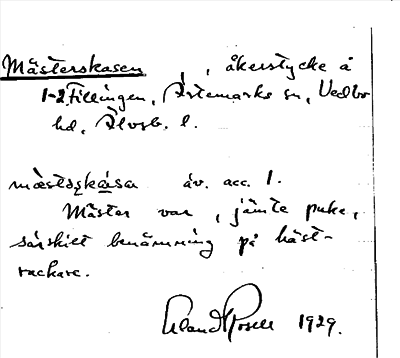 Mästerskasen, åkerstycke å
1-2 Fillingen, Ärtemarks sn, Vedbo
hd, Älvsb. l.
mästsskåsa äv. acc. 1.
Mäster var, jämte puke,
särskilt benämning på häst-
rackare.
Erland Rosell 1929.